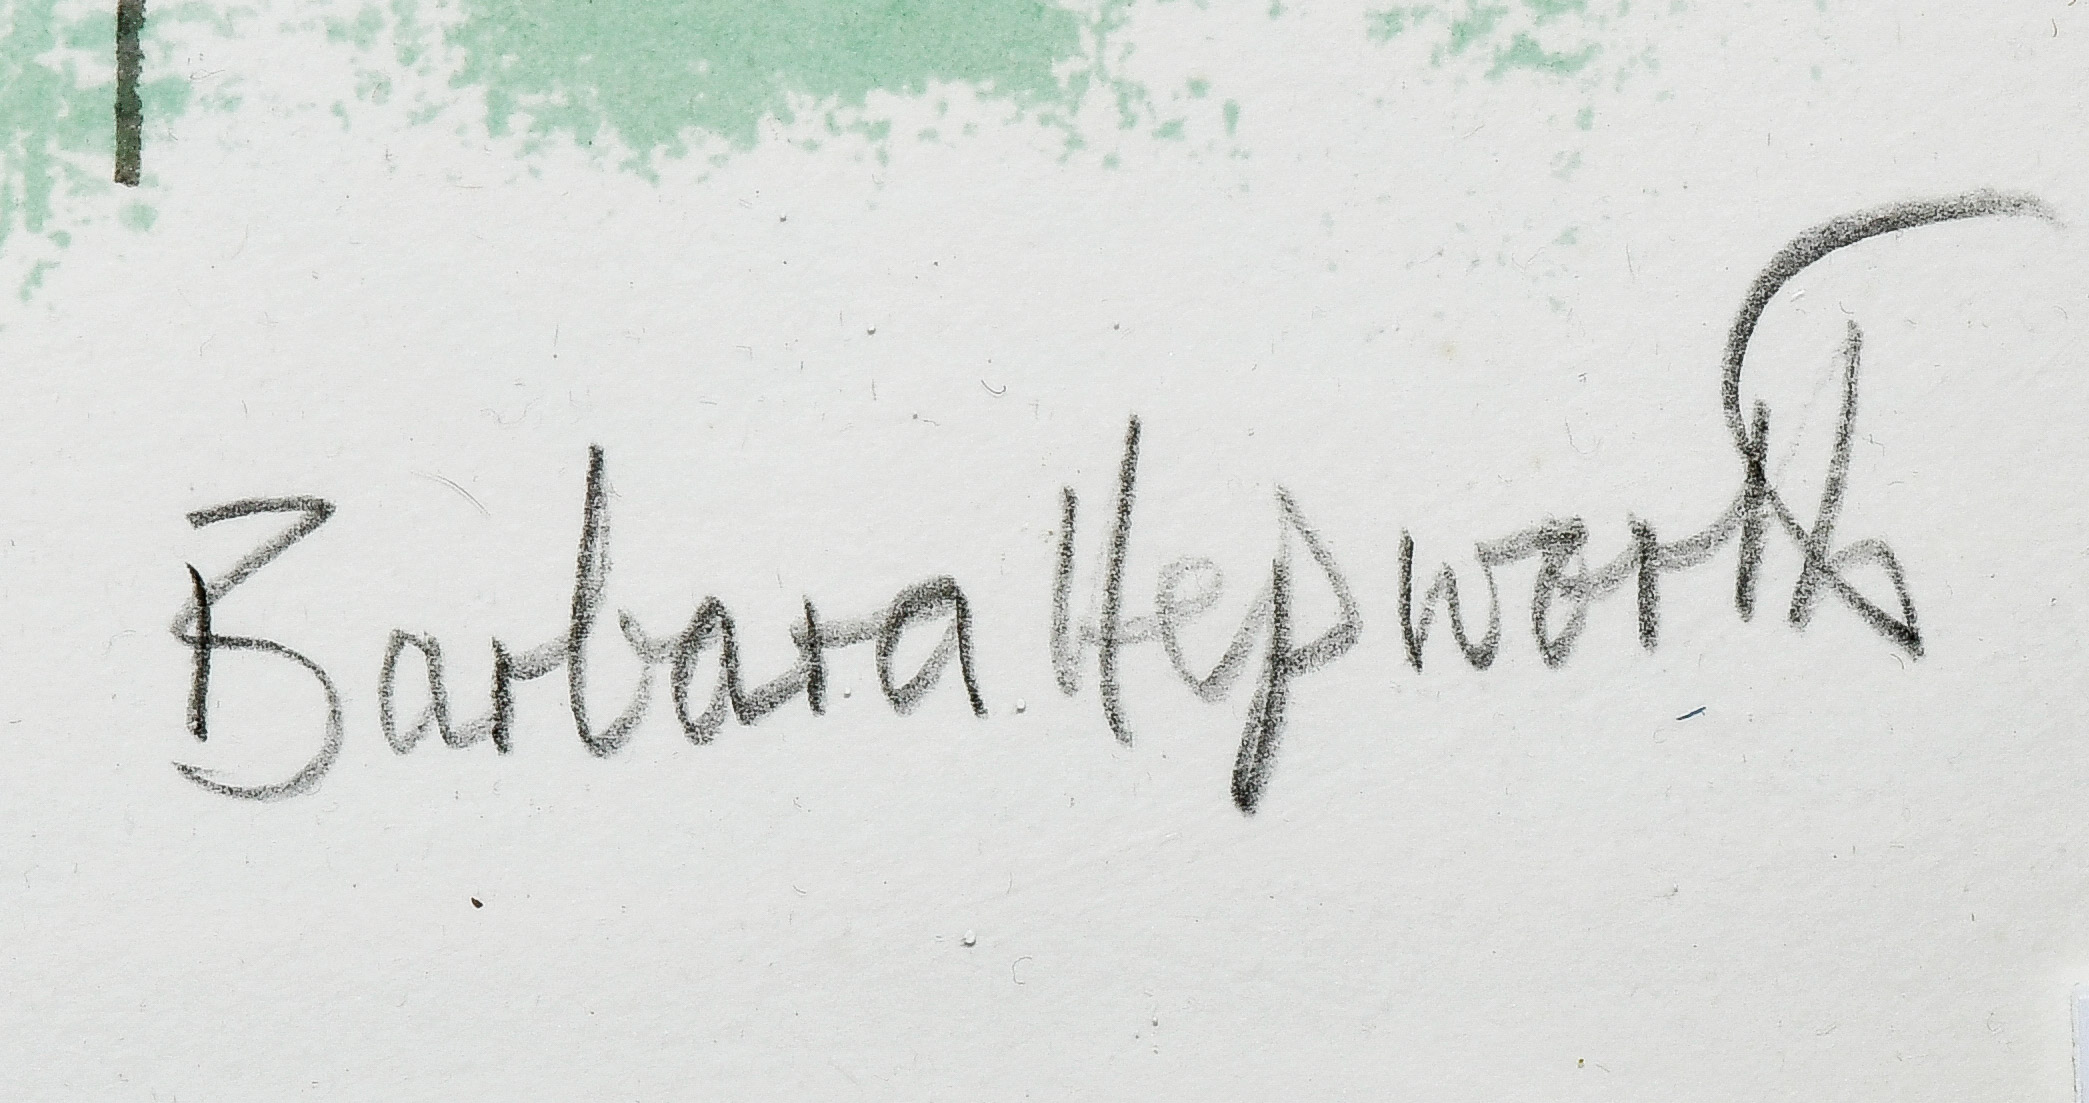 Barbara Hepworth